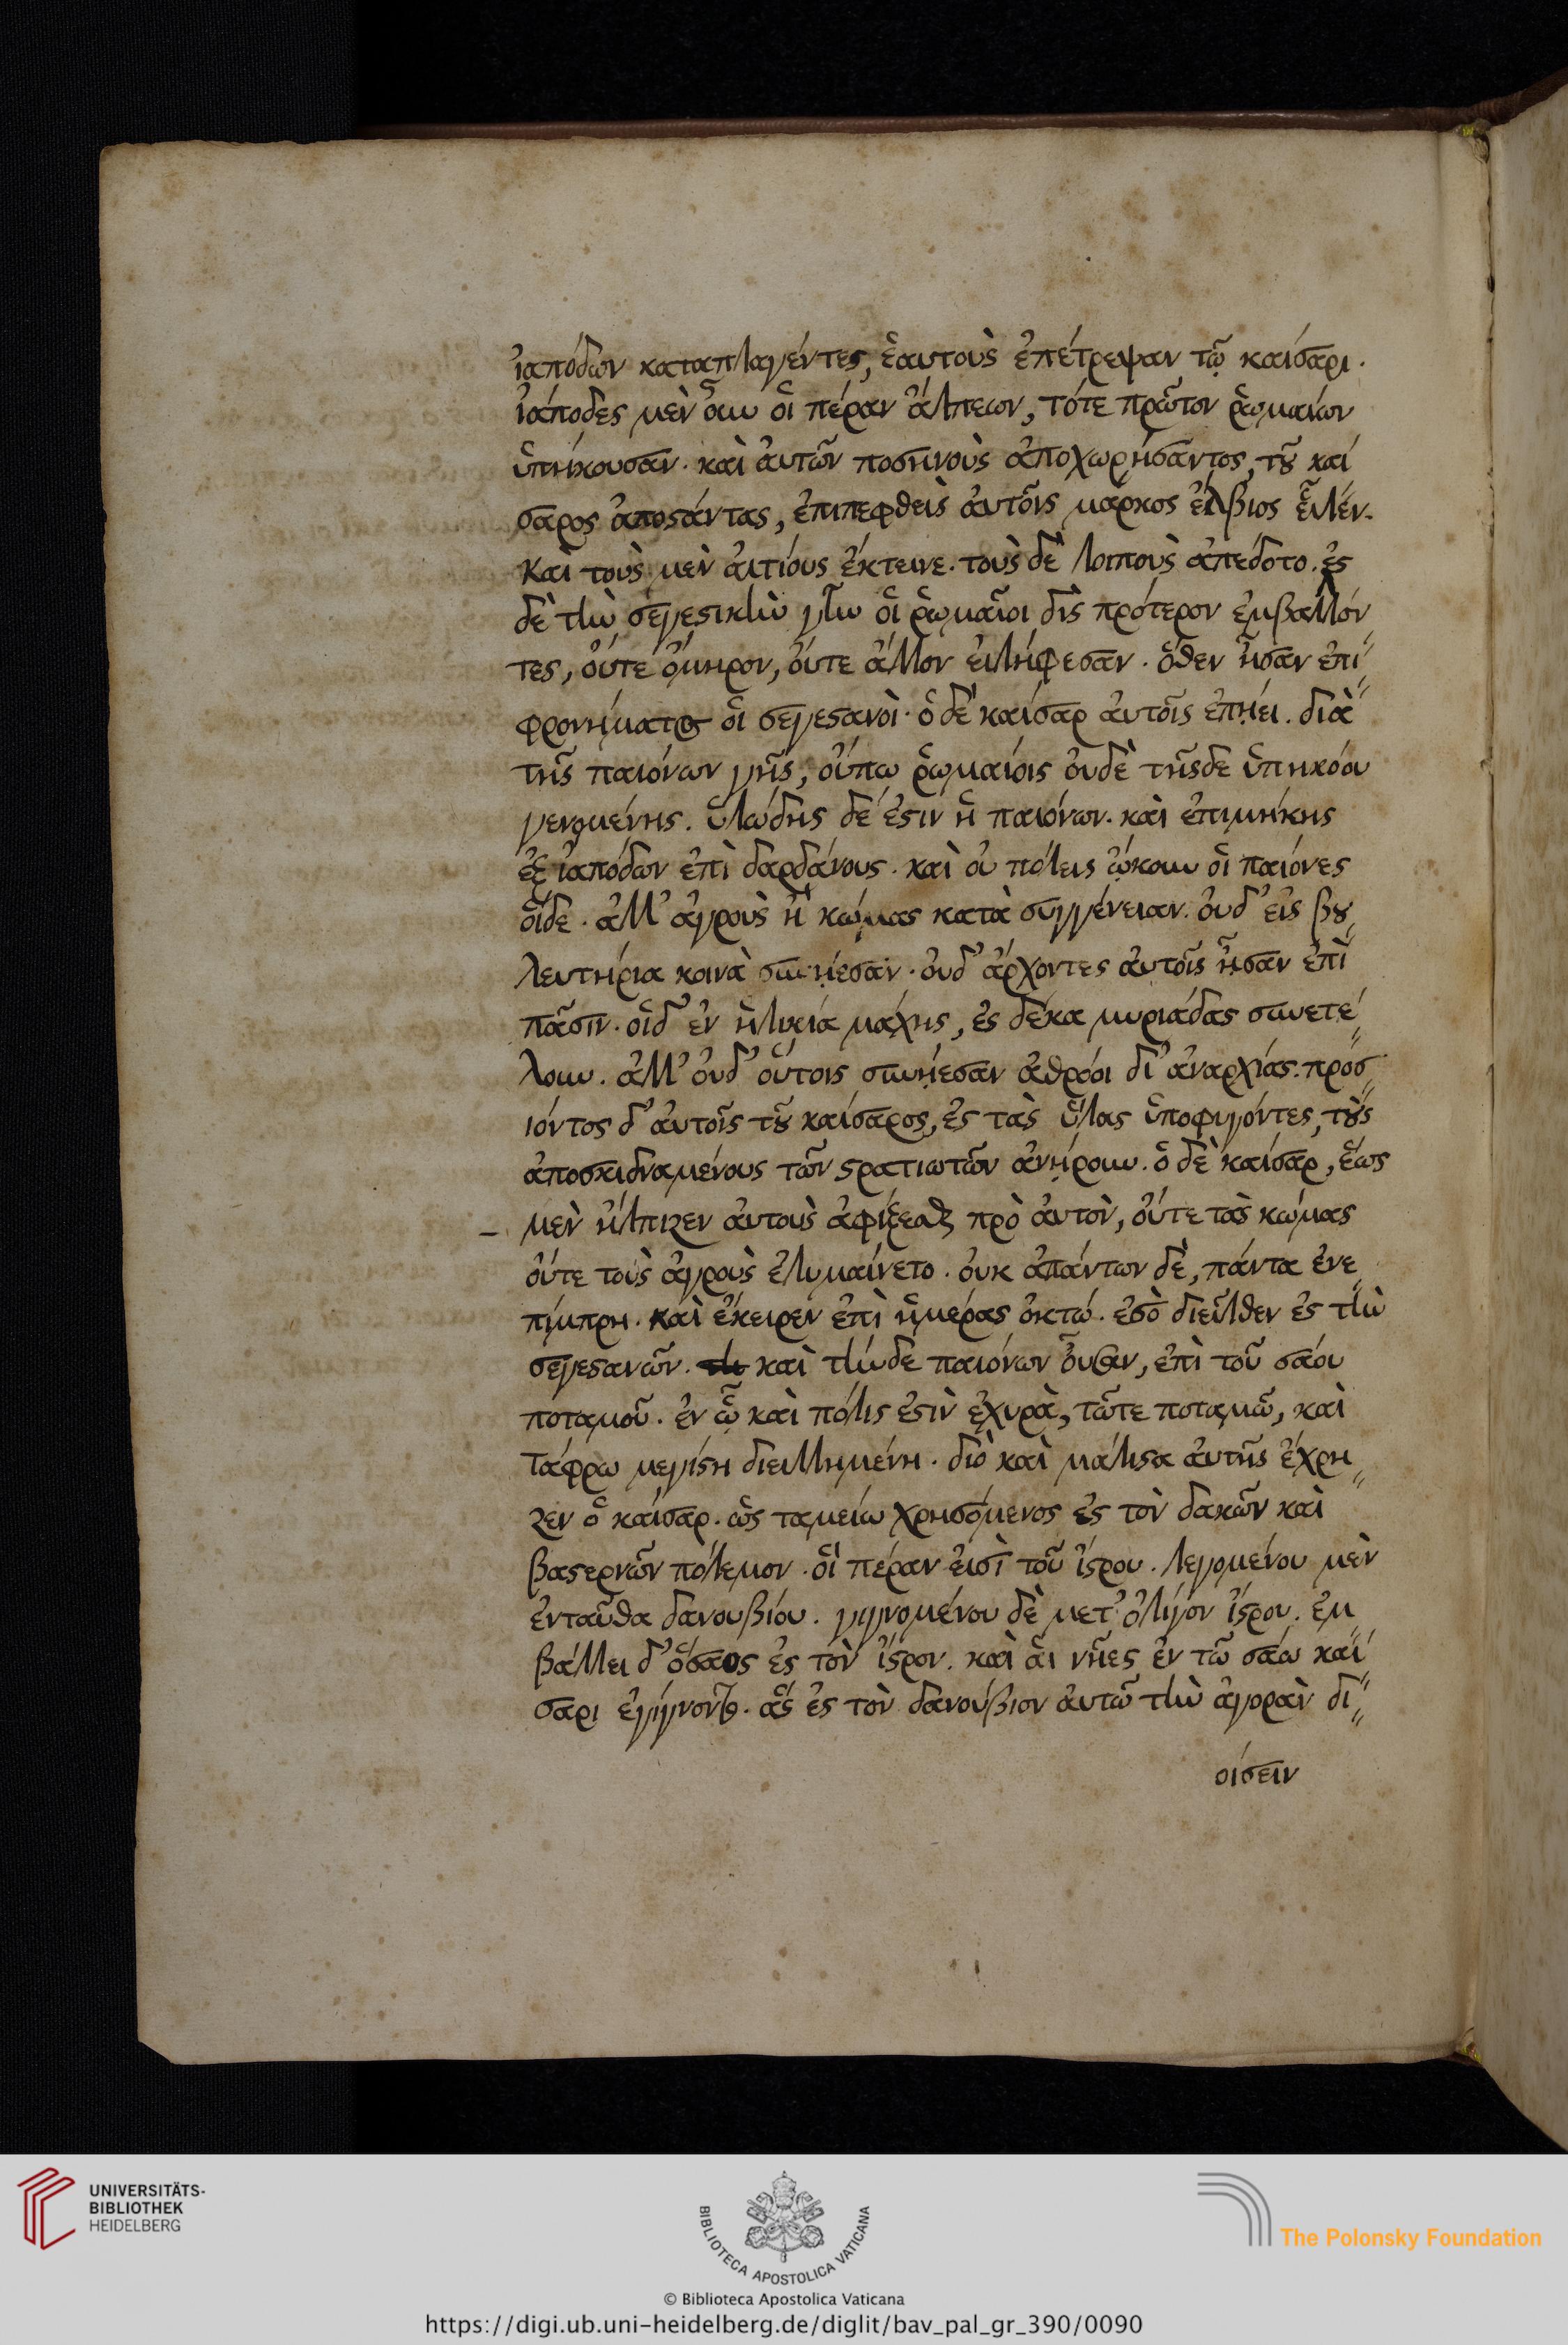 ἰαπόδων καταπλαγέντες, ἑαυτοὺς ἐπέτρεψαν τῷ καίσαρι.
ἰάποδες μὲν οὖν οἱ πέραν ἄλπεων, τότε πρῶτον ῥωμαίων
ὑπήκουσαν. καὶ αὐτῶν ποσηνοὺς ἀποχωρήσαντος, τοῦ καί
σαρος ἀποστάντας, ἐπιπεφθεὶς αὐτοῖς μάρκος ἔλβιος εἷλέν.
καὶ τοὺς μὲν αἰτίους ἔκτεινε. τοὺς δὲ λοιποὺς ἀπέδοτο. ἐς
δὲ τὴν σεγεστικὴν γῆν οἱ ῥωμαῖοι δὶς πρότερον ἐμβαλλόν
τες, οὔτε ὅμηρον, οὔτε ἄλλον εἰλήφεσαν. ὅθεν ἦσαν ἐπὶ
φρονήματος οἱ σεγεστανοὶ. ὁ δὲ καίσαρ αὐτοῖς ἐπῄει. διὰ
τῆς παιόνων γῆς, οὔπω ῥωμαίοις οὐδὲ τῆσδε ὑπηκόου
γενομένης. ὑλώδης δέ ἐστιν ἡ παιόνων. καὶ ἐπιμήκης
ἐξ ἰαπόδων ἐπὶ δαρδάνους. καὶ οὐ πόλεις ᾤκουν οἱ παιόνες
οἵδε. ἀλλ' ἀγροὺς ἢ κώμας κατὰ συγγένειαν. οὐδ' εἰς βου
λευτήρια κοινὰ συνῄεσαν. οὐδ' ἄρχοντες αὐτοῖς ἦσαν ἐπὶ
πᾶσιν. οἱδ' ἐν ἡλικία μάχης, ἐς δέκα μυριάδας συνετέ
λουν. ἀλλ' οὐδ' οὗτοις συνῄεσαν ἀθρόοι δι' ἀναρχίας. προσ
ιόντος δ' αὐτοῖς τοῦ καίσαρος, ἐς τὰς ὕλας ὑποφυγόντες, τοὺς
ἀποσκιδναμένους τῶν στρατιωτῶν ἀνῄρουν. ὁ δὲ καίσαρ, ἕως
μὲν ἤλπιζεν αὐτοὺς ἀφίξεσθαι πρὸ αὐτὸν, οὔτε τὰς κώμας
οὔτε τοὺς ἀγροὺς ἐλυμαίνετο. οὐκ ἀπάντων δὲ, πάντα ἐνε
πίμπρη. καὶ ἔκειρεν ἐπὶ ἡμέρας ὀκτώ. ἐσὸ διεῖλθεν ἐς τὴν
σεγεστανῶν. καὶ τήνδε παιόνων οὖσαν, ἐπὶ τοῦ σάου
ποταμοῦ. ἐν ᾧ καὶ πόλις ἐστὶν ἐχυρὰ, τῶτε ποταμῶ, καὶ
τάφρω μεγίστη διειλλημένη. διὸ καὶ μάλιστα αὐτῆς ἔχρη
ζεν ὁ καίσαρ. ὡς ταμείω χρησόμενος ἐς τὸν δακῶν καὶ
βαστερνῶν πόλεμον. οἳ πέραν εἰσὶ τοῦ ἴστρου. λεγομένου μὲν
ἐνταῦθα δανουβίου. γιγνομένου δὲ μετ' ὀλίγον ἴστρου. ἐμ
βάλλει δ' ὁσαος ἐς τὸν ἴστρον. καὶ αἱ νῆες ἐν τῶ σάω καί
σαρι ἐγίγνοντο. αἳ ἐς τὸν δανούβιον αὐτῶ τὴν ἀγορὰν δι
οίσειν
UNIVERSITÄTS-
BIBLIOTHEK
HEIDELBERG
BIBLIOTECA APOSTOLICA VATICANA
The Polonsky Foundation
© Biblioteca Apostolica Vaticana
https://digi.ub.uni-heidelberg.de/diglit/bav_pal_gr_390/0090